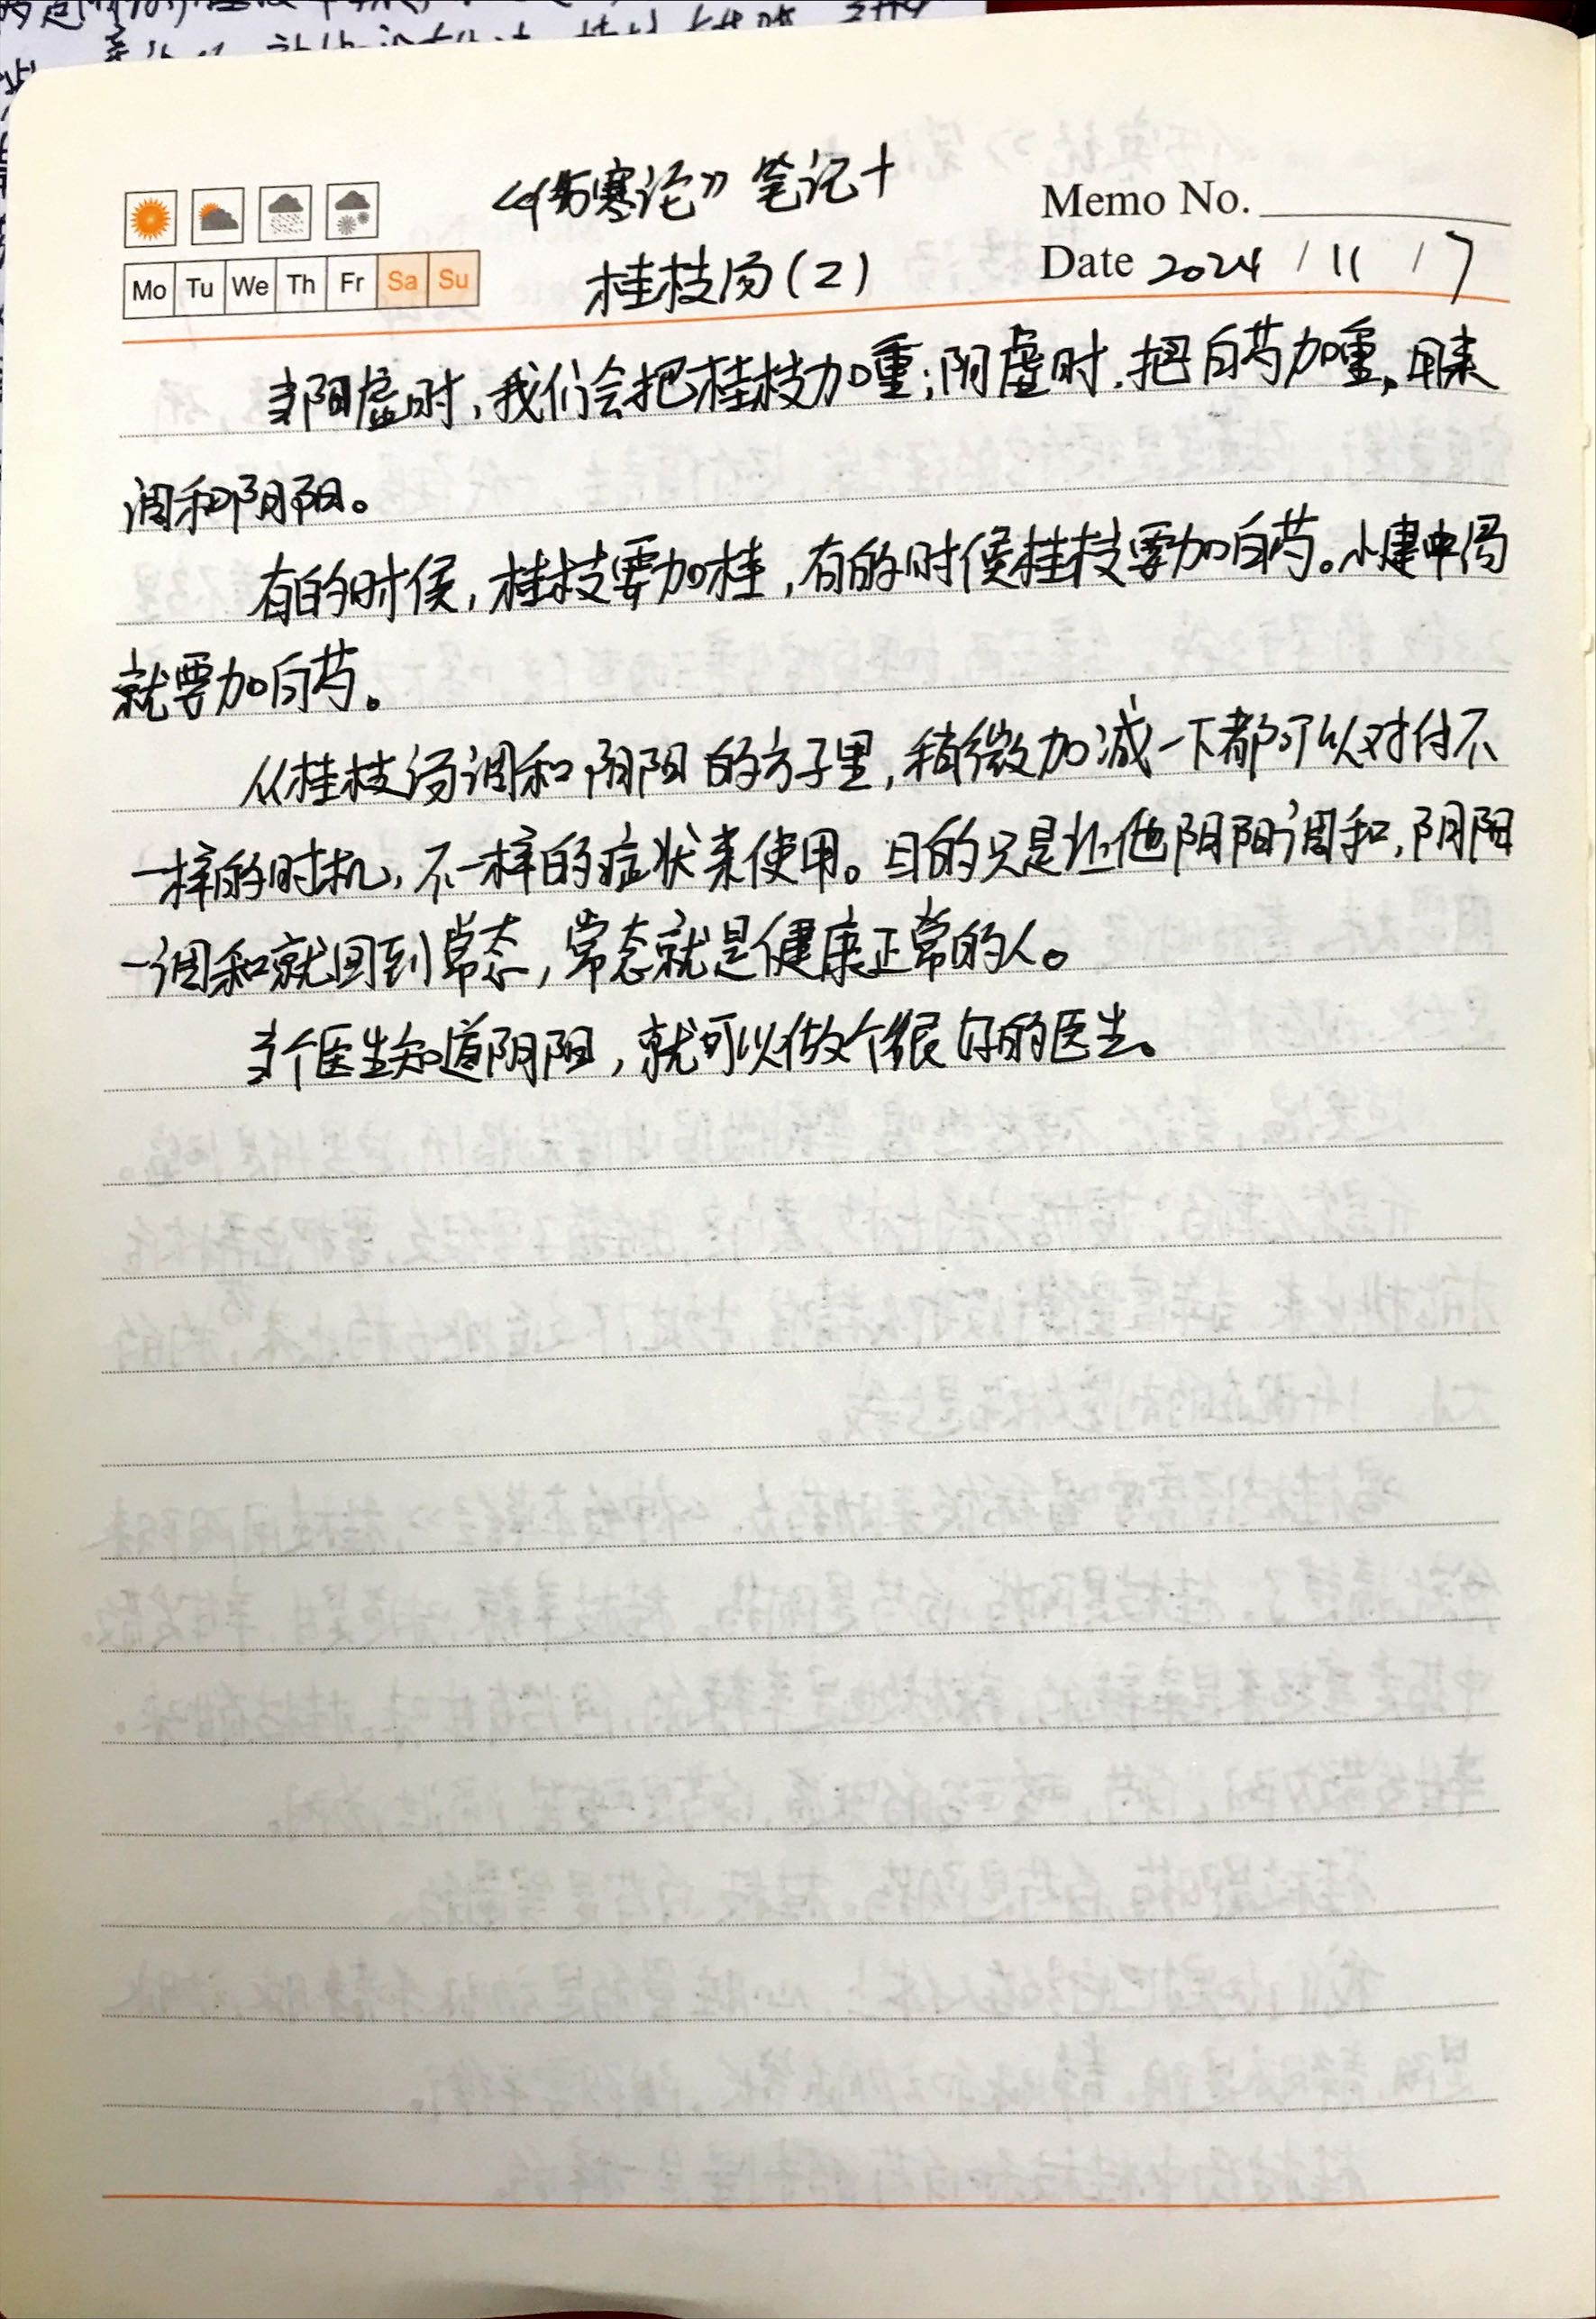 《伤寒论》笔记十
桂枝汤(2)
Memo No.
Date 2024 / 11 / 7
Mo Tu We Th Fr Sa Su
当阳虚时,我们会把桂枝加重;阴虚时,把白芍加重,用来
调和阴阳。
有的时侯,桂枝要加桂,有的时侯桂枝要加白芍。小建中汤
就要加白芍。
从桂枝汤调和阴阳的方子里,稍微加减一下都可以对付不
一样的时机,不一样的症状来使用。目的只是让他阴阳调和,阴阳
一调和就回到常态,常态就是健康正常的人。
当个医生知道阴阳,就可以做个很好的医生。